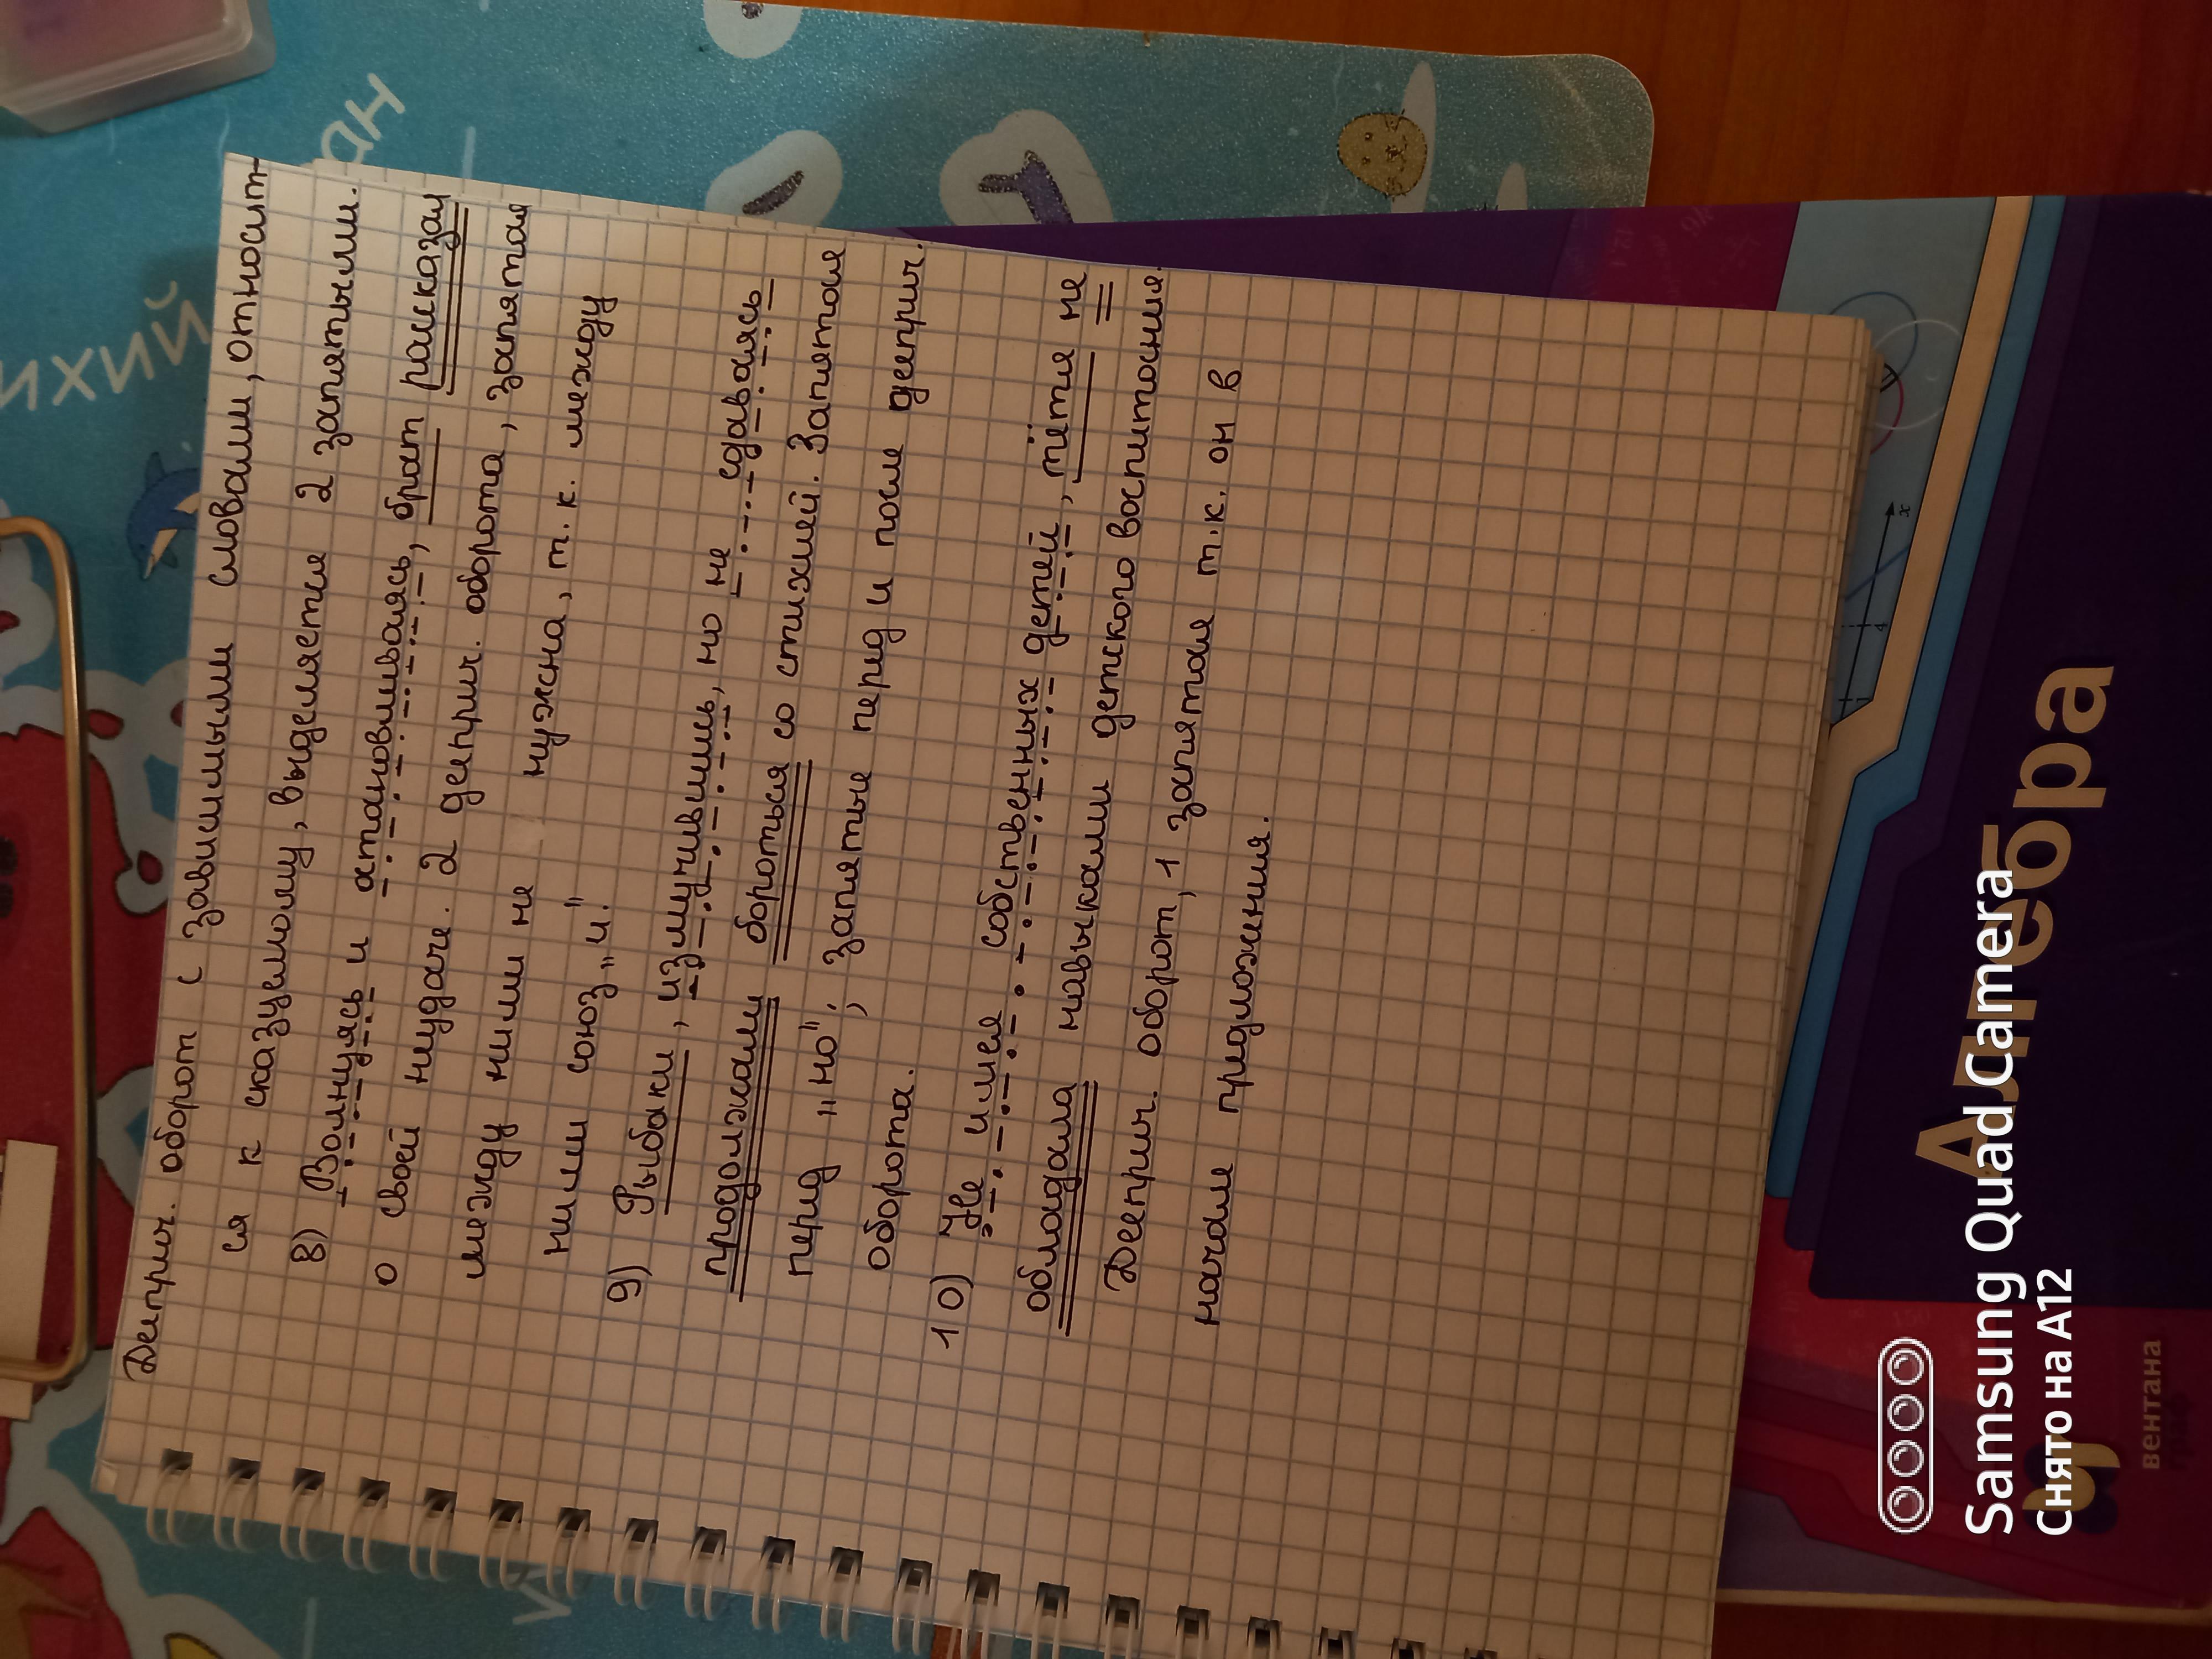 Дееприч. оборот с зависимыми словами, относит-
ся к сказуемому, выделяется 2 запятыми.
8) Волнуясь и останавливаясь, брат рассказал
о своей неудаче. 2 дееприч. оборота, запятая
между ними не нужна, т.к. между
ними союз „и".
9) Рыбаки, измучившись, но не сдаваясь
продолжали бороться со стихией. Запятая
перед „но"; запятые перед и после дееприч.
оборота.
10) Не имея собственных детей, тётя не
обладала навыками детского воспитания.
Дееприч. оборот, 1 запятая т.к. он в
начале предложения.
ихий
ан
Алгебра
вентана
x
Samsung Quad Camera
Снято на A12